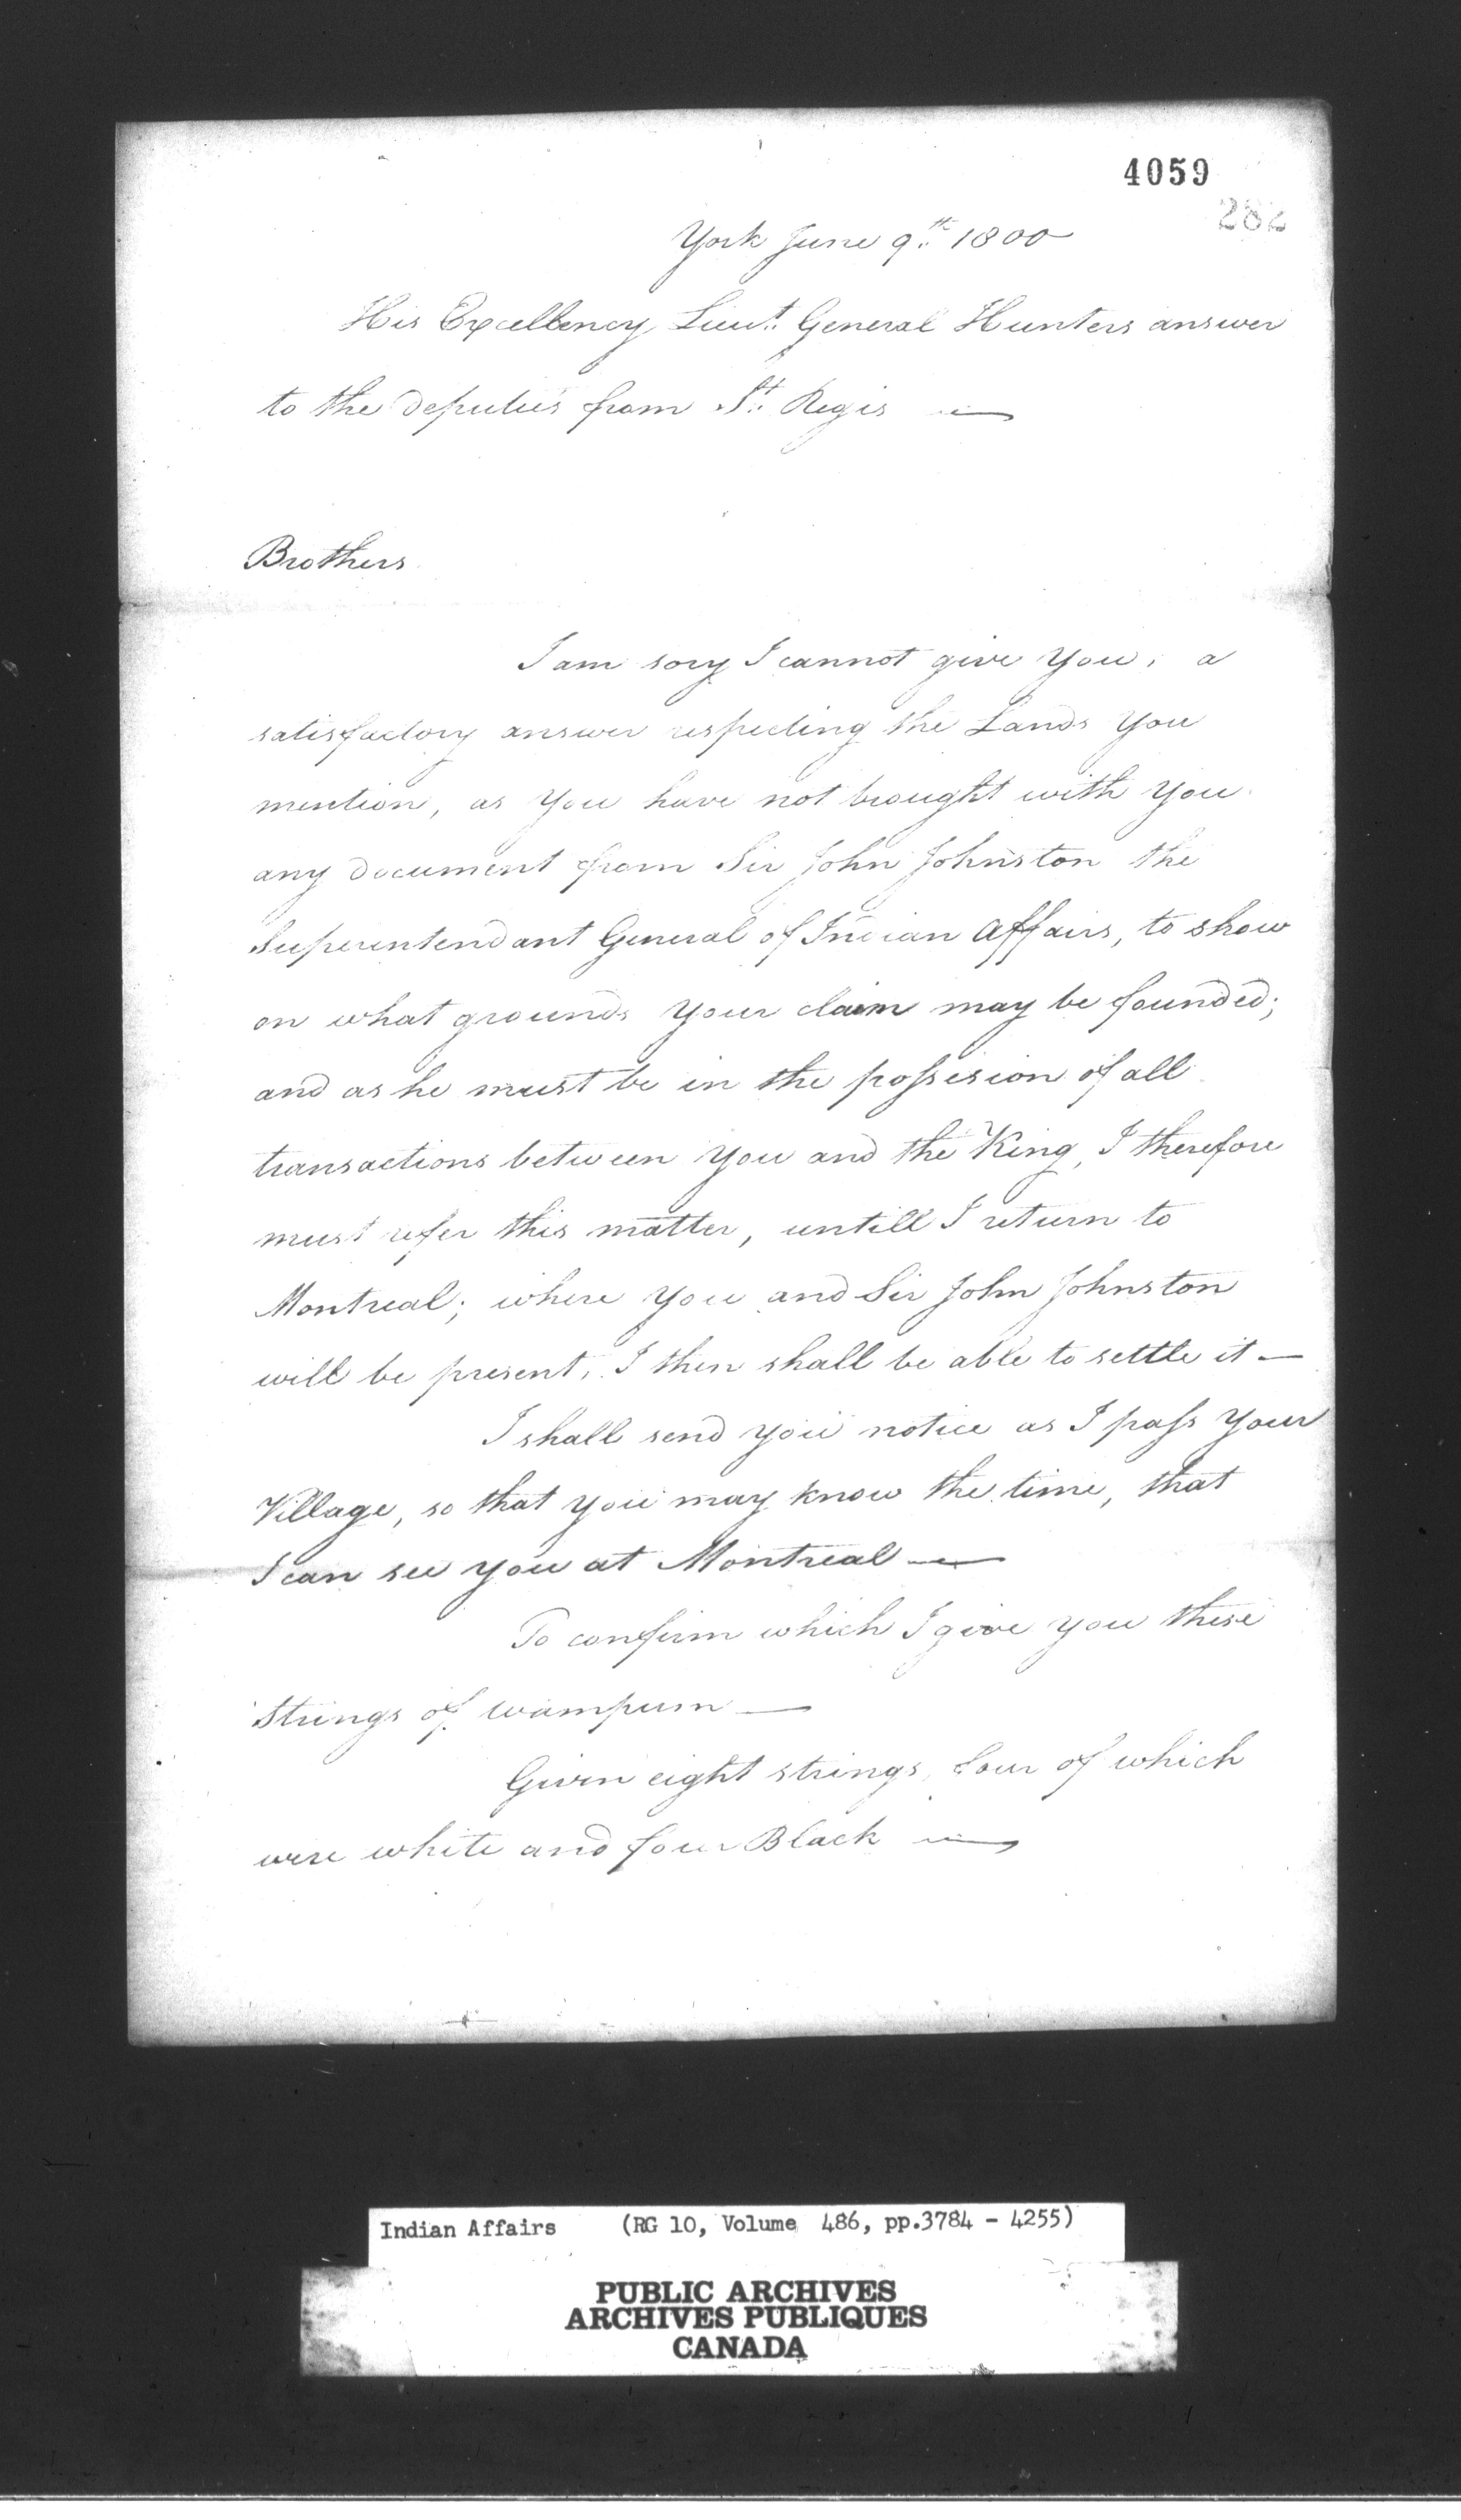 4059
282
York June 9th 1800
His Excellency Lieut. General Hunters answer
to the deputies from St. Regis —
Brothers
I am sory I cannot give you, a
satisfactory answer respecting the Lands you
mention, as you have not brought with you
any document from Sir John Johnston the
Superentendant General of Indian Affairs, to show
on what grounds your claim may be founded;
and as he must be in the possesion of all
transactions between you and the King, I therefore
must refer this matter, untill I return to
Montreal; where you and Sir John Johnston
will be present, I then shall be able to settle it —
I shall send you notice as I pass your
Village, so that you may know the time, that
I can see you at Montreal —
To confirm which I give you these
Strings of wampum —
Given eight strings, four of which
were white and four Black —
Indian Affairs (RG 10, Volume 486, pp.3784 - 4255)
PUBLIC ARCHIVES
ARCHIVES PUBLIQUES
CANADA